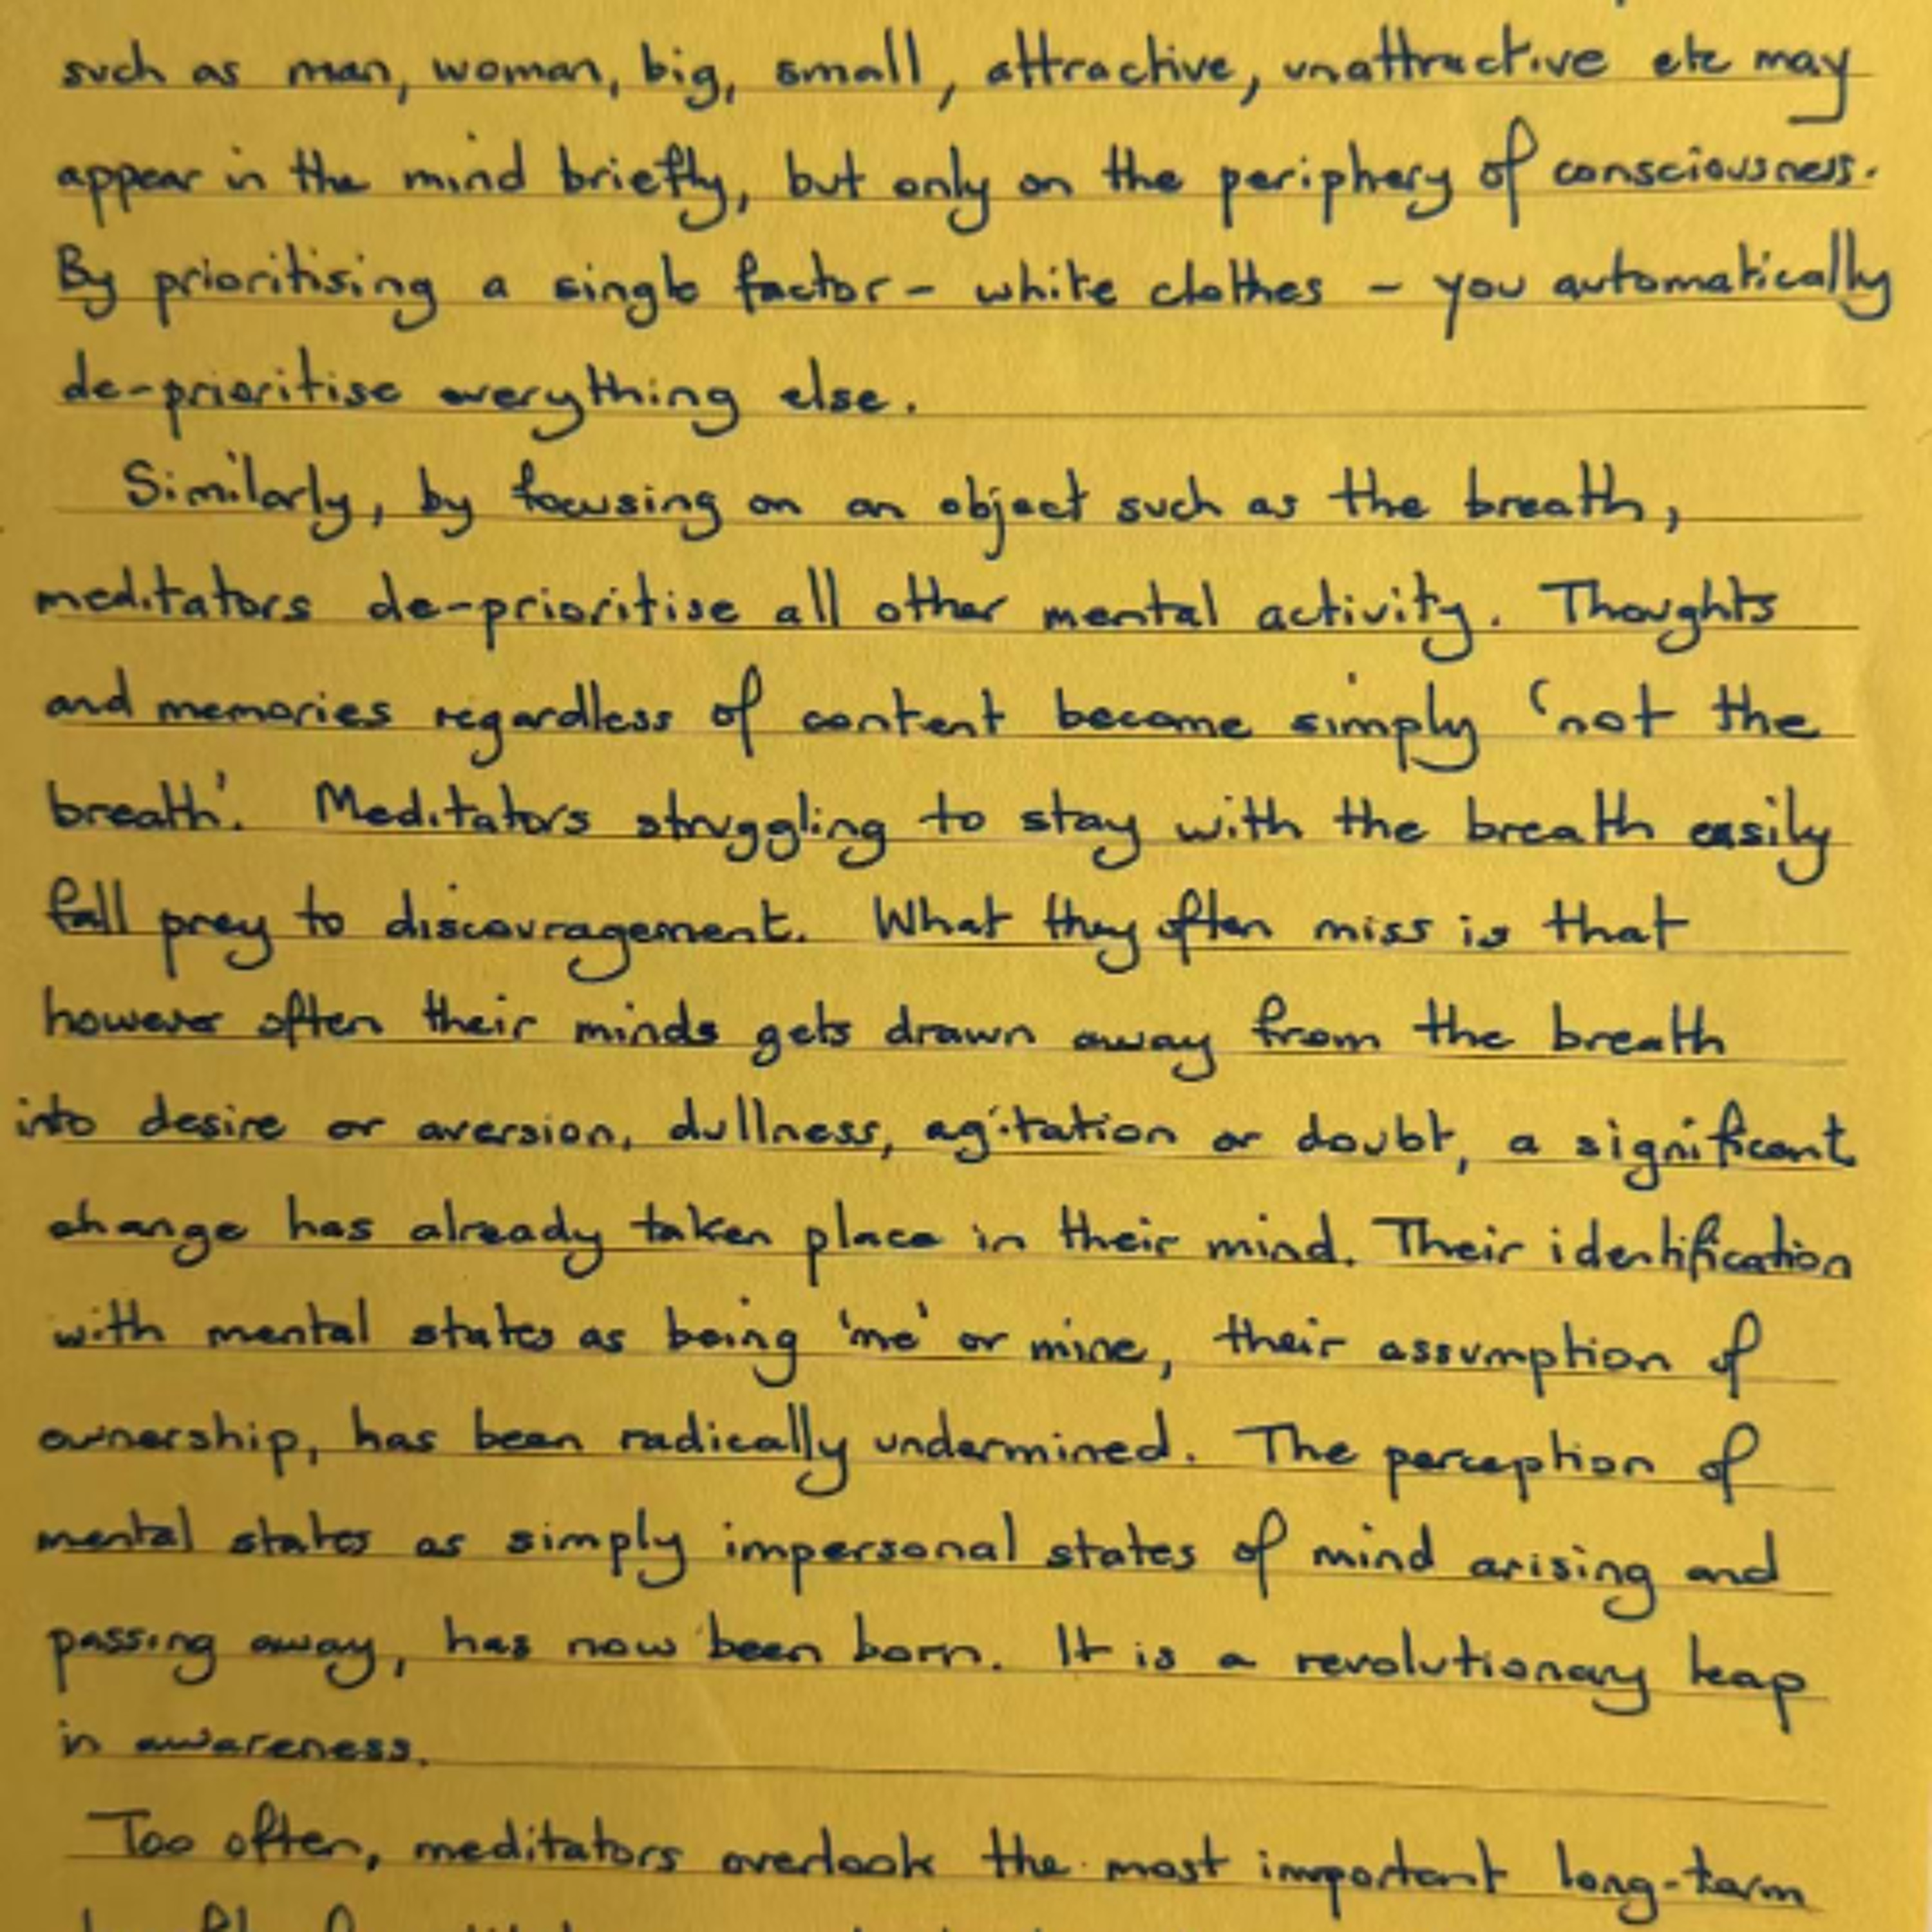 such as man, woman, big, small, attractive, unattractive etc may
appear in the mind briefly, but only on the periphery of consciousness.
By prioritising a single factor - white clothes - you automatically
de-prioritise everything else.
Similarly, by focusing on an object such as the breath,
meditators de-prioritise all other mental activity. Thoughts
and memories regardless of content become simply 'not the
breath'. Meditators struggling to stay with the breath easily
fall prey to discouragement. What they often miss is that
however often their minds gets drawn away from the breath
into desire or aversion, dullness, agitation or doubt, a significant
change has already taken place in their mind. Their identification
with mental states as being 'me' or mine, their assumption of
ownership, has been radically undermined. The perception of
mental states as simply impersonal states of mind arising and
passing away, has now been born. It is a revolutionary leap
in awareness.
Too often, meditators overlook the most important long-term